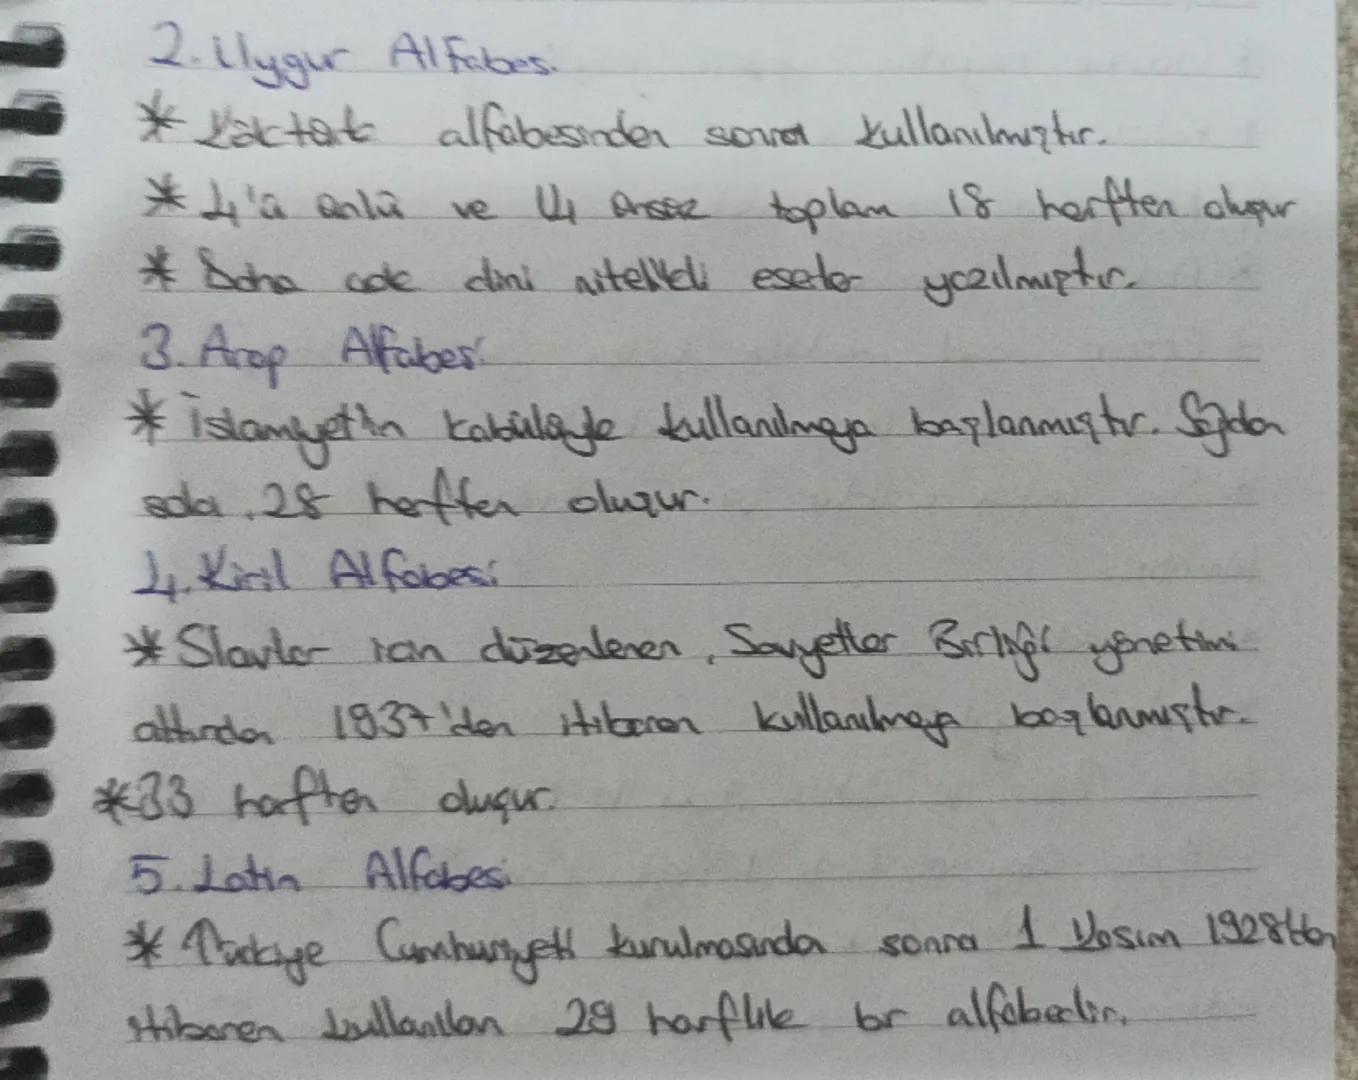 2. Uygur Alfabesi
* Göktürk alfabesinden sonra kullanılmıştır.
* 4'ü ünlü ve 14 ünsüz toplam 18 harften oluşur
* Daha çok dini nitelikli eserler yazılmıştır.
3. Arap Alfabesi
* İslamiyet'in kabülüyle kullanılmaya başlanmıştır. Sağdan
sola. 28 harften oluşur.
4. Kiril Alfabesi
* Slavlar için düzenlenen, Sovyetler Birliği yönetimi
altından 1937'den itibaren kullanılmaya başlanmıştır.
* 33 harften oluşur.
5. Latin Alfabesi
* Türkiye Cumhuriyeti kurulmasından sonra 1 Kasım 1928'ten
itibaren kullanılan 29 harflik bir alfabedir.